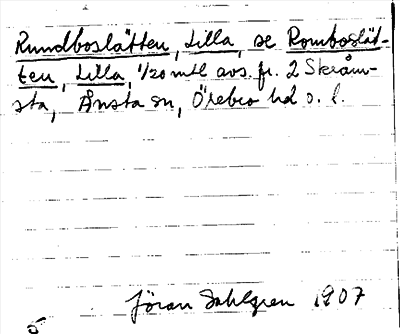 Rundboslätten, Lilla, se Romboslät-
ten, Lilla, 1/20 mtl avs. fr. 2 Skråm-
sta, Ånsta sn, Örebro hd o. l.
Jöran Sahlgren 1907